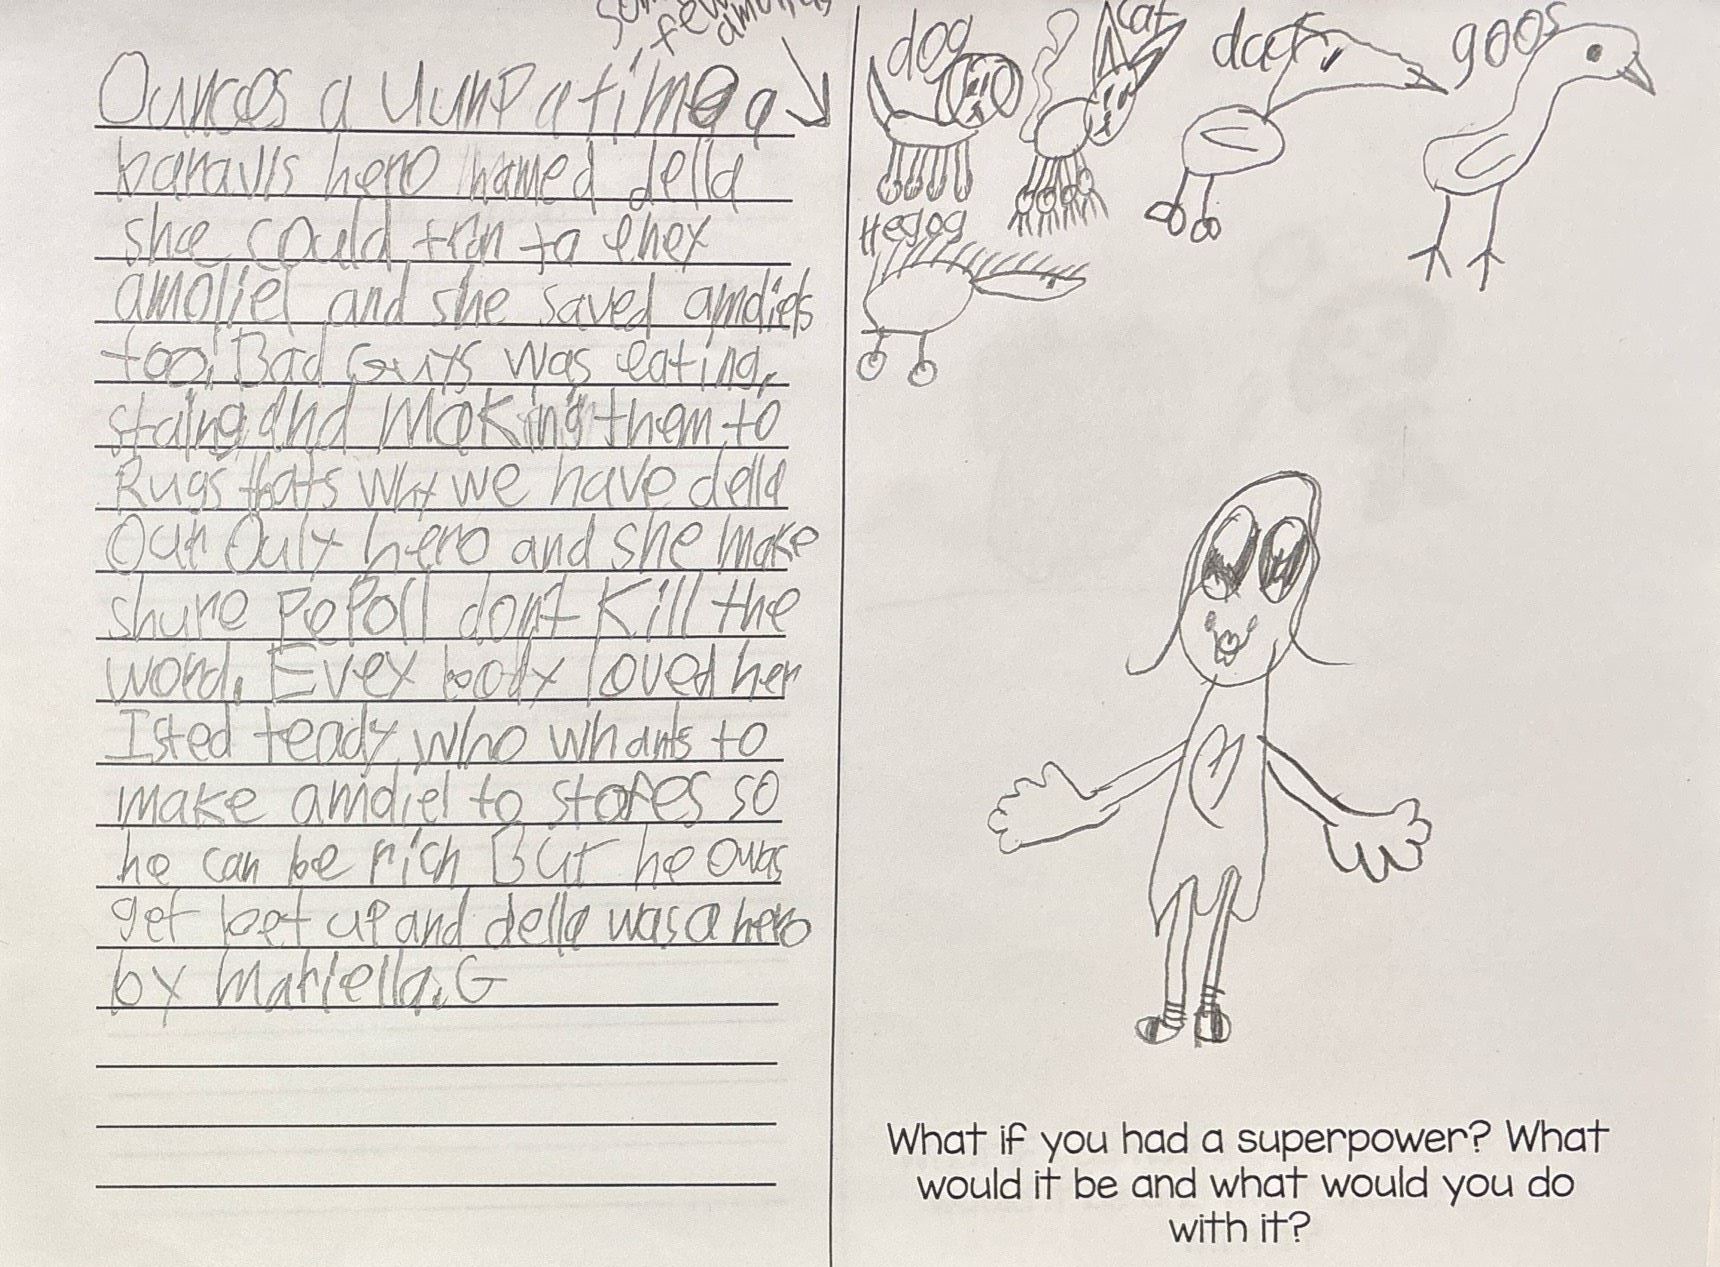 som
few
amoliels
Ounces a Uunp a time a
baravls hero named della
she could trn to enex
amoliel and she saved amdiels
too! Bad Guys was eating,
staing and Making them to
Rugs thats why we have della
Our Ouly hero and she make
shure PePoll dont Kill the
word. Evey body loved her
Isted teady who whants to
make amdiel to stores so
he can be rich But he ouas
get bet up and della was a hero
by Mariella.G
dog
cat
goos
Hegog
What if you had a superpower? What
would it be and what would you do
with it?